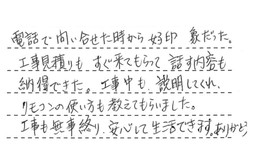 電話で問い合せた時から好印象だった。
工事見積りも すぐ来てもらって 話す内容も
納得できた。工事中も、説明してくれ、
リモコンの使い方も教えてもらいました。
工事も無事終り、安心して生活できます。ありがとう